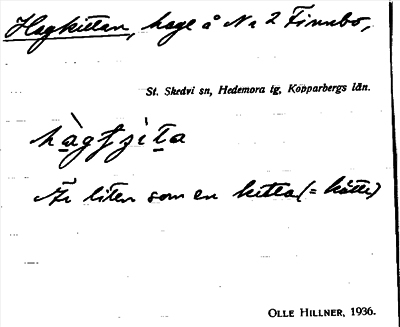 Hagkittan, hage å No 2 Finnbo,
St. Skedvi sn, Hedemora tg, Kopparbergs län.
Är liten som en kitta (= kätte)
OLLE HILLNER, 1936.